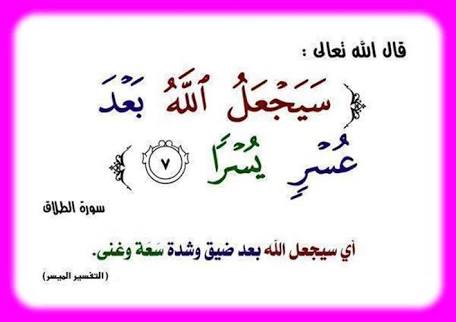 قال الله تعالى :
﴿ سَيَجْعَلُ ٱللَّهُ بَعْدَ
عُسْرٍ يُسْرًا ٧ ﴾
سورة الطلاق
أي سيجعل الله بعد ضيق وشدة سَعَة وغنى.
( التفسير الميسر )